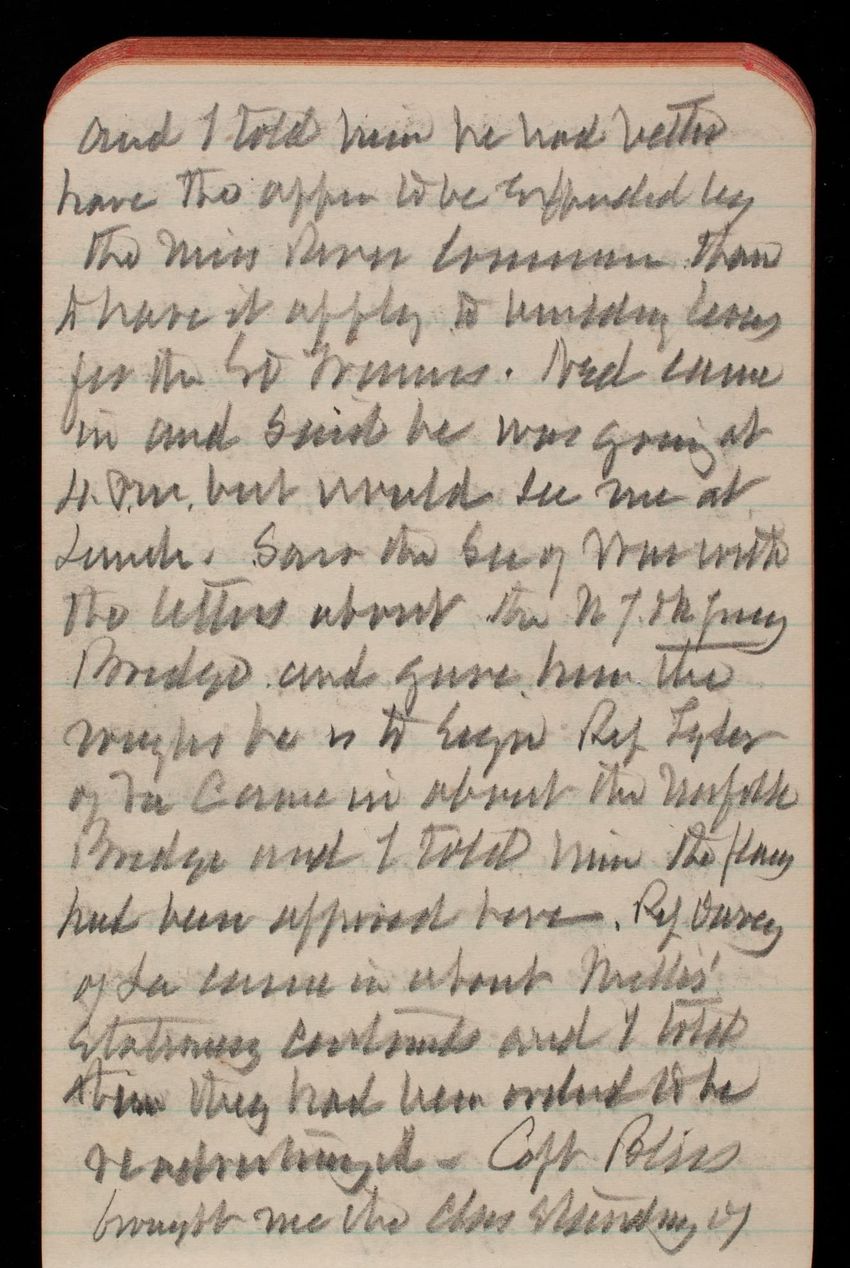 and I told him he had better
have the appn to be Expended by
the Miss River Commn than
to have it apply to building levees
for the St Francis. Ned came
in and said he was going at
4. P.M. but would see me at
Lunch. Saw the Sec of War with
the letters about the N.J.
Bridge and gave him the
he is to sign Rep Tyler
of Va Came in about the Norfolk
Bridge and I told him the plans
had been approved here. Rep Davey
of La came in about Mellis'
Stationery contracts and I told
him they had been ordered to be
readvertised - Capt Bliss
brought me the class standing of